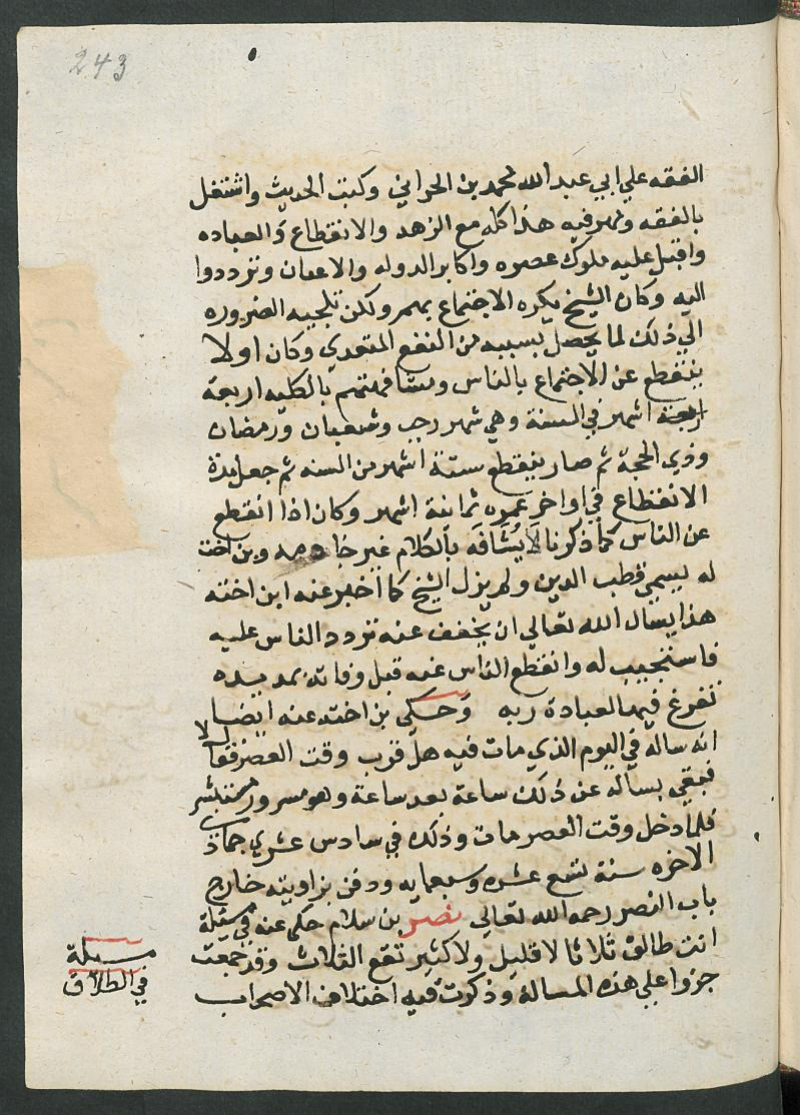 243
الفقه علي ابي عبد الله محمد بن الحراني وكتب الحديث واشتغل
بالفقه ومهر فيه هذا كله مع الزهد والانقطاع والعباده
واقبل عليه ملوك عصره واكابر الدوله والاعيان وترددوا
اليه وكان الشيخ يكره الاجتماع بهم ولكن تلجيه الضروره
الي ذلك لما يحصل بسببه من النفع المتعدي وكان اولا
ينقطع عن الاجتماع بالناس ومشافهتهم بالكليه اربعة
اربعة اشهر في السنة وهي شهر رجب وشعبان ورمضان
وذي الحجة ثم صار ينقطع ستة اشهر من السنه ثم جعل مدة
الانقطاع في اواخر عمره ثمانية اشهر وكان اذا انقطع
عن الناس كما ذكرنا لا يُشَافَه بالكلام غير خادمه وبن اخت
له يسمي قطب الدين ولم يزل الشيخ كما اخبر عنه ابن اخته
هذا يسال الله تعالي ان يخفف عنه تردد الناس عليه
فاستجيب له وانقطع الناس عنه قبل وفاته بمديده
تفرغ فيها لعبادة ربه وحكي بن اخته عنه ايضا
انه ساله في اليوم الذي مات فيه هل قرب وقت العصر فقال لا
فبقي يساله عن ذلك ساعة بعد ساعة وهو مسرور مستبشر
فلما دخل وقت العصر مات وذلك في سادس عشري جمادي
الاخره سنة تسع عشره وسبعمايه ودفن بزاويته خارج
باب النصر رحمه الله تعالي نصر بن سلام حكي عنه في مسئلة
انت طالق ثلاثا لا قليل ولا كثير تقع الثلاث وقد جمعت
جزوا علي هذه المسالة وذكرت فيه اختلاف الاصحاب
مسيلة
في الطلاق